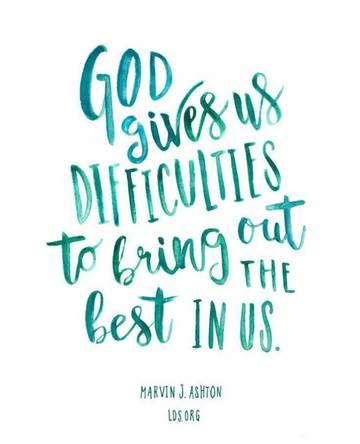 GOD
gives us
DIFFICULTIES
to bring out
THE
best IN US.
MARVIN J. ASHTON
LDS.ORG